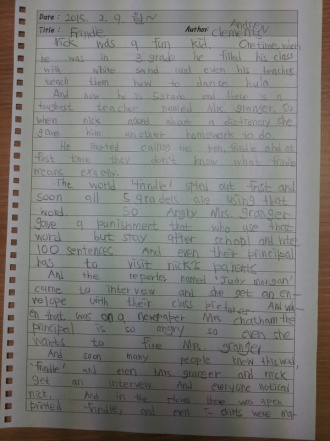 Date : 2015. 2. 9. 월~
Title : Frindle Author: Andrew Clements
Nick was a fun kid. One time when
he was in 3 grade he filled his class
with white sand and even his teacher
teach them how to dance hula
And now he is 5 grade and there is a
toughest teacher named Mrs. granger, so
when nick asked about a dictionary she
gave him an extra homework to do.
He started calling the pen, frindle and at
first time they don't know what frindle
means exactly.
The world 'frindle' spread out first and
soon all 5 graders are using that
word. So Angry Mrs. granger
gave a punishment that who use that
word but stay after school and write
100 sentences And even their principal
has to visit nick's parents
And the reporter named 'Judy morgan'
came to interview and she get an en-
velope with their class picture. And wh-
en that was on a newspaper Mrs chatham the
principal is so angry so even she
wants to fire Mrs. granger
And soon many people knew this word,
'frindle' and even Mrs granger and nick
get an interview And everyone noticed
nick, And in the
printed frindle, and even T-shirts were